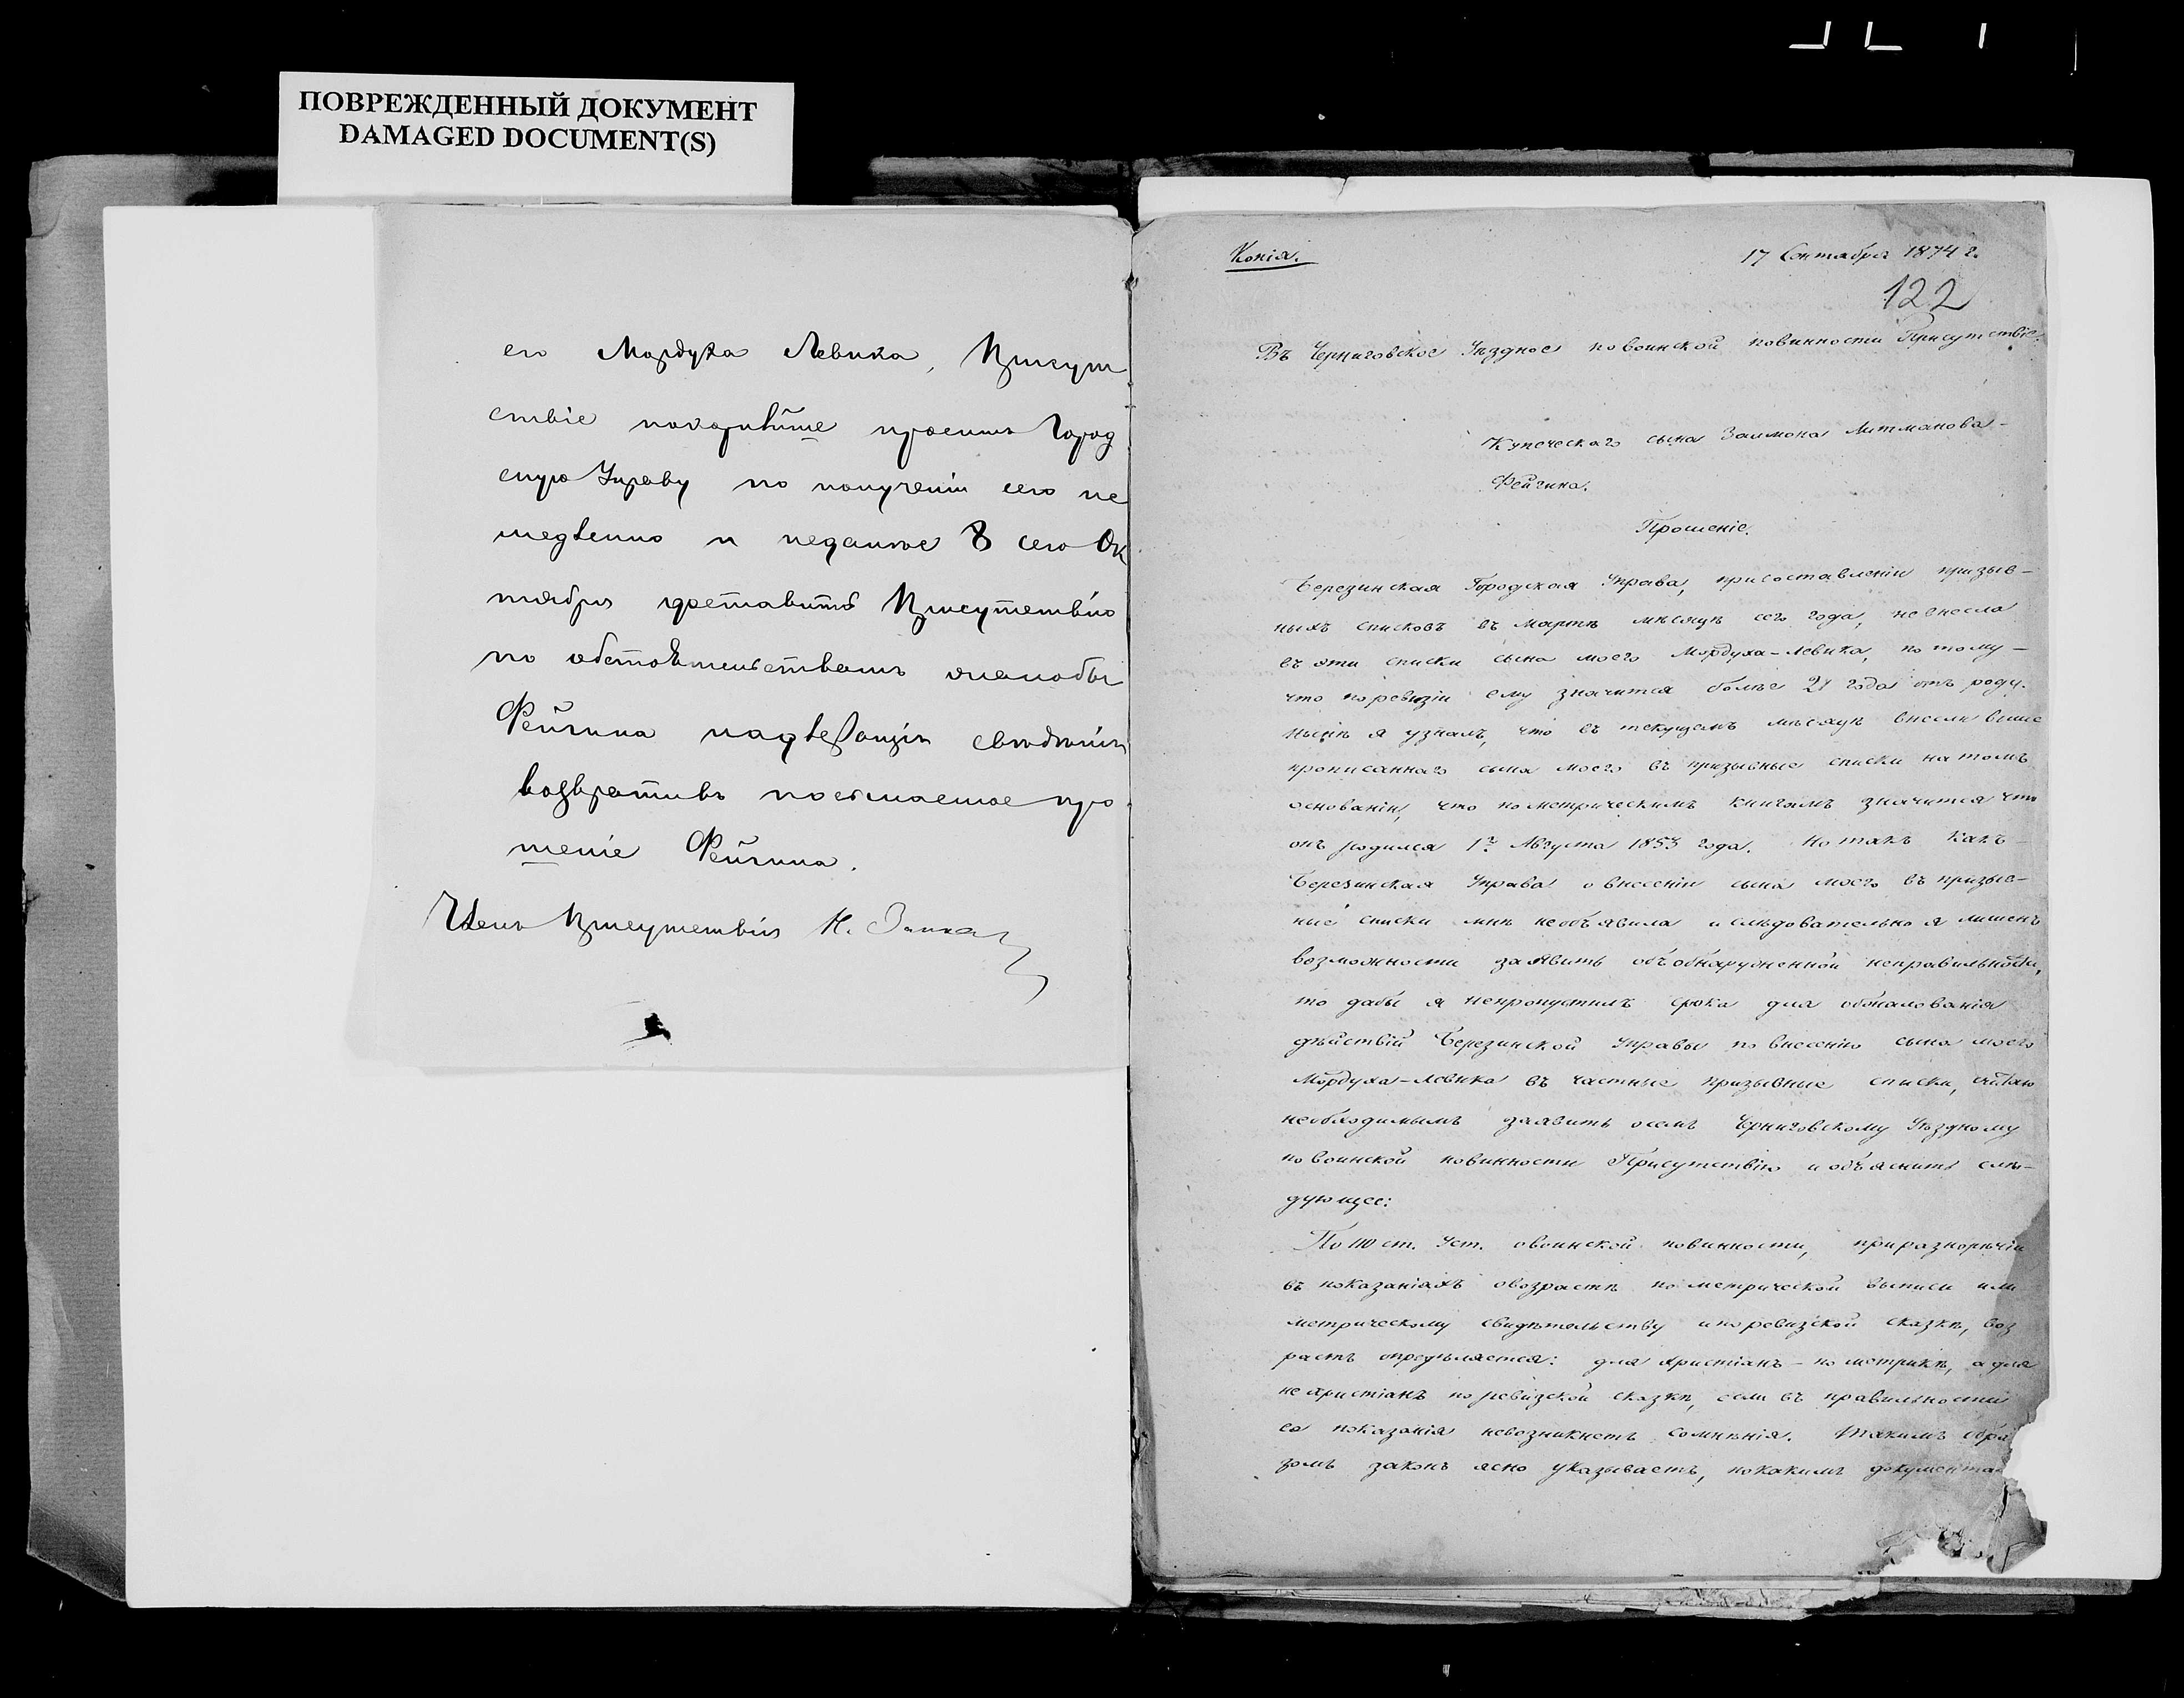 ПОВРЕЖДЕННЫЙ ДОКУМЕНТ
DAMAGED DOCUMENT(S)
его Мордуха Левика, Присут
ствіе покорнѣйше проситъ Город
скую Управу по полученіи сего не
медленно и не далѣе 8 сего Ок
тября доставить Присутствію
по обстоятельствамъ жалобы
Фейгина надлежащія свѣдѣнія
возвративъ посылаемое про
шеніе Фейгина.
Членъ Присутствія Н.
Копія.
17 Сентября 1874 г.
122
Въ Черниговское Уѣздное по воинской повинности Присутствіе.
Купеческаго сына Залмона Литманова
Фейгина.
Прошеніе.
Березинская Городская Управа, при составленіи призыв-
ныхъ списковъ въ Мартѣ мѣсяцѣ сего года, не внесла
въ эти списки сына моего Мордуха-Левика, потому-
что по ревизіи ему значится болѣе 21 года отъ роду.
Нынѣ я узналъ, что въ текущемъ мѣсяцѣ внесли выше
прописаннаго сына моего въ призывные списки на томъ
основаніи, что по метрическимъ книгамъ значится что
онъ родился 1го Августа 1853 года. Но такъ какъ
Березинская Управа о внесеніи сына моего въ призыв-
ные списки мнѣ не объявила и слѣдовательно я лишенъ
возможности заявить объ обнаруженной неправильности,
то дабы я не пропустилъ срока для обжалованія
дѣйствій Березинской Управы по внесенію сына моего
Мордуха-Левика въ частные призывные списки, считаю
необходимымъ заявить о семъ Черниговскому Уѣздному
по воинской повинности Присутствію и объяснить слѣ-
дующее:
По 110 ст. Уст. о воинской повинности, при разнорѣчіи
въ показаніяхъ о возрастѣ по метрической выписи или
метрическому свидѣтельству и по ревизской сказкѣ, воз
растъ опредѣляется: для христіанъ - по метрикѣ, а для
не христіанъ по ревизской сказкѣ, если въ правильности
ея показанія не возникнетъ сомнѣнія. Такимъ обра
зомъ законъ ясно указываетъ, по какимъ документа